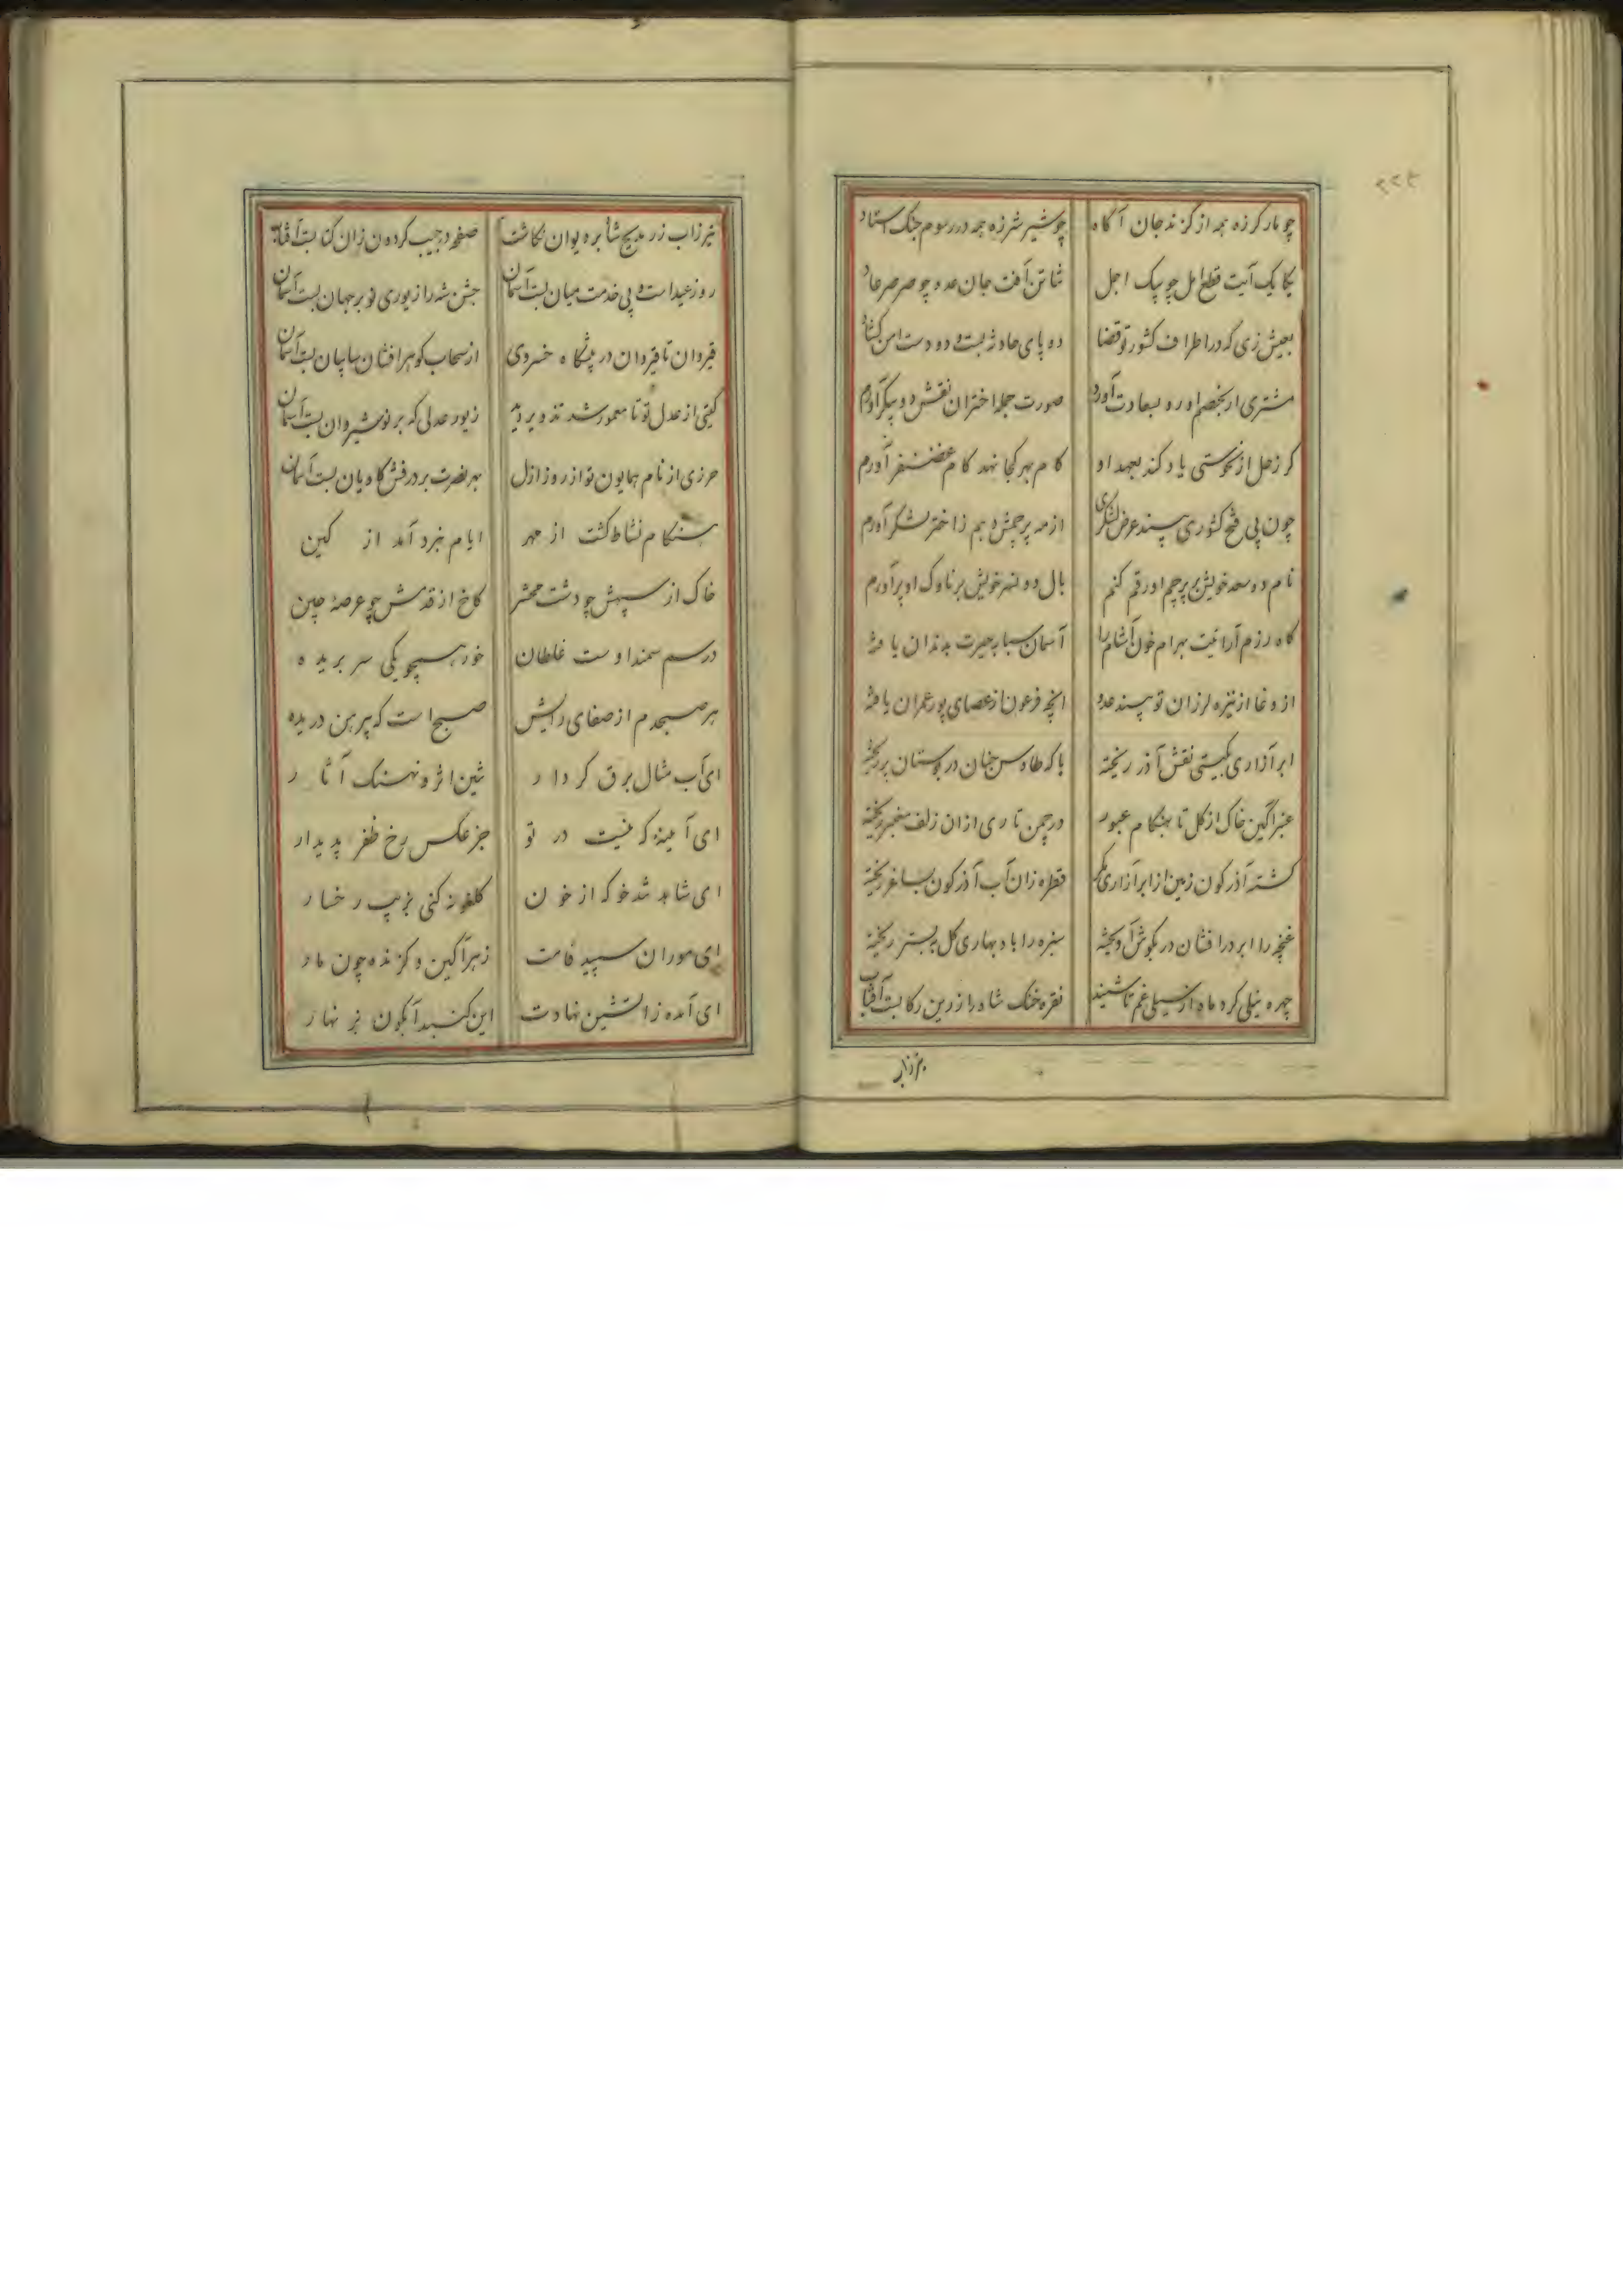 ۲۲۲
چو مار کرزه همه از کزند جان آکاه چو شیر شرزه همه در رسوم جنک استاد
یکایک آیت قطع امل چو پیک اجل آفت جان عدو چو صرصر عاد
بعیش زی که در اطراف کشور تو قضا دو پای حادثه بست و دو دست امن کشاد
مشتری از خصم او رو بسعادت آورد صورت جمله اختران نقش دو پیکر آورم
کر زحل از نحوستی یاد کند بعهد او کام بهر کجا نهد کام غضنفر آورم
چون پی فتح کشوری بیند عرض لشکری از مه پرچمش دهم ز اختر لشکر آورم
نام دو سعد خویش بر پرچم او رقم کنم بال دو نسر خویش بر ناوک او بر آورم
کاه رزم آرائیت بهرام خون آشام را آسمان سبابه حیرت بدندان یافته
از وغا از نیزه لرزان تو بیند عدو آنچه فرعون از عصای پور عمران یافته
ابر آزاری بکیتی نقش آذر ریخته یا که طاوس جنان در بوستان پر ریخته
عنبر آکین خاک از کل تا بهنکام عبور در چمن تاری از ان زلف معنبر ریخته
کشته آذرکون زمین از ابر آزاری مکر قطره زان آب آذرکون بساغر ریخته
غنچه را ابر در افشان در بکوش آویخته سبزه را باد بهاری کل به بستر ریخته
چهره نیلی کرد ماه از سیلی غم تا شنید نقره خنک شاه را زرین رکاب بست آفتاب
تیر زاب زر مدیح شا بر دیوان نکاشت صفحه در جیب کردون زان کتاب بست آفتاب
روز عید است و پی خدمت میان بست آسمان جشن شه را زیوری نو بر جهان بست آسمان
قیروان تا قیروان در پیشکاه خسروی از سحاب کوهر افشان سایبان بست آسمان
کیتی از عدل تو تا معمور شد زیور عدلی که بر نوشیروان بست آسمان
حرزی از نام همایون تو از روز ازل بهر نصرت بر درفش کاویان بست آسمان
هنکام نشاط کشت از مهر ایام نبرد آمد از کین
خاک از سپهش چو دشت محشر کاخ از قدمش چو عرصهٔ چین
در سم سمند اوست غلطان خور همچو یکی سر بریده
هر صبحدم از صفای رایش صبح است که پیرهن دریده
ای آب مثال برق کردار تنین اثر و نهنک آثار
ای آینهٔ که نیست در تو جز عکس رخ ظفر پدیدار
ای شاهد شدخو که از خون کلغونه کنی بزیب رخسار
ای موران سپید قامت زهرآکین و کزنده چون مار
ای آمده ز آتشین نهادت این کنبد آبکون پر نهار